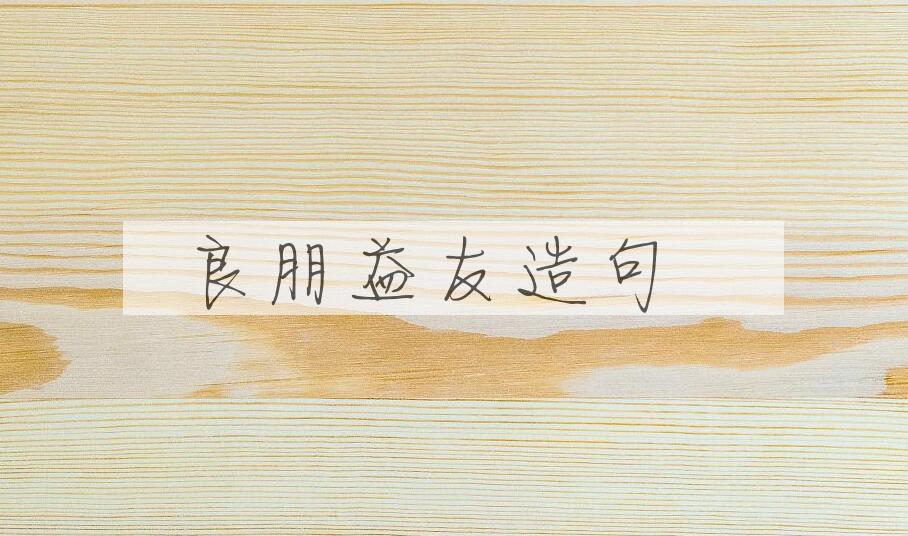 良朋益友造句